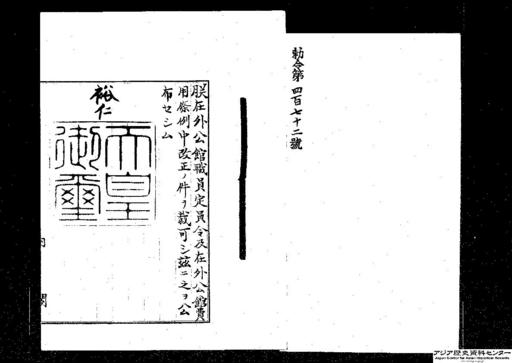 勅令第四百七十二號
朕在外公館職員定員令及在外公館費
用條例中改正ノ件ヲ裁可シ茲ニ之ヲ公
布セシム
裕仁
天皇
御璽
内閣
アジア歴史資料センター
Japan Center for Asian Historical Records